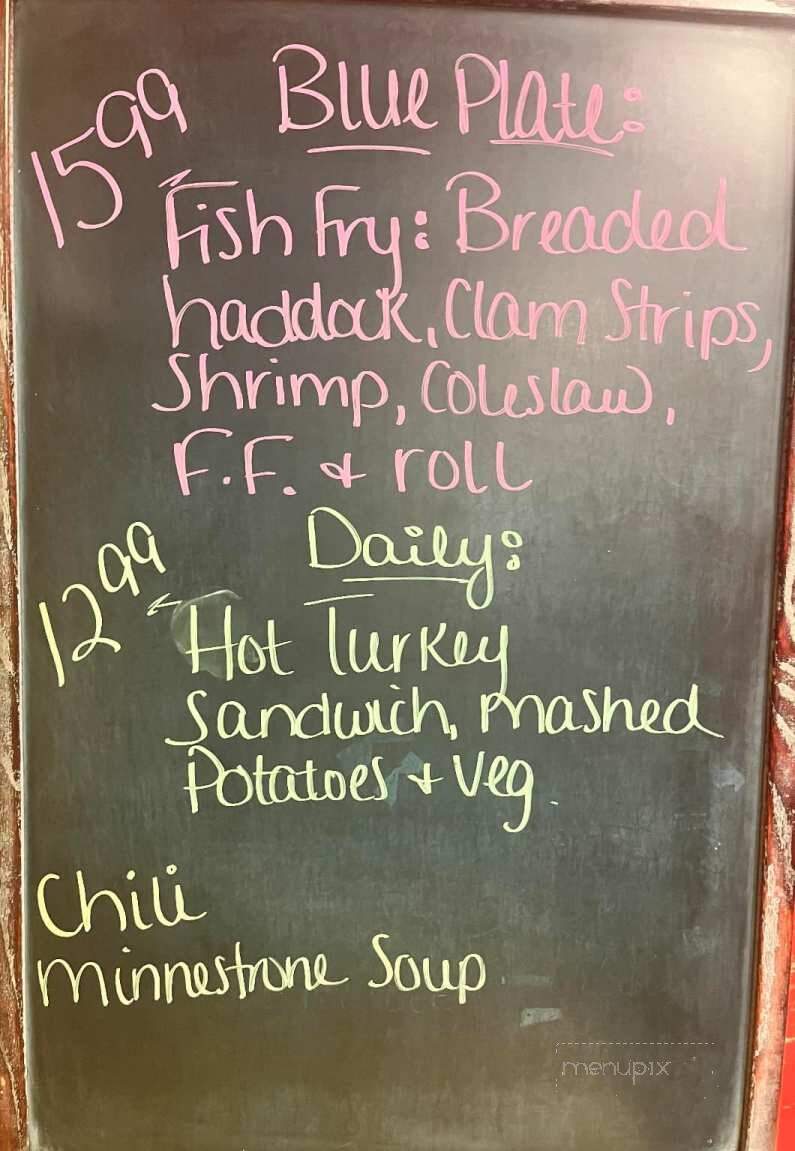 15.99 Blue Plate:
Fish Fry: Breaded
haddock, Clam Strips,
Shrimp, Coleslaw,
F.F. & roll
12.99 Daily:
Hot Turkey
Sandwich, mashed
Potatoes + Veg.
Chili
minnestrone Soup
menupix